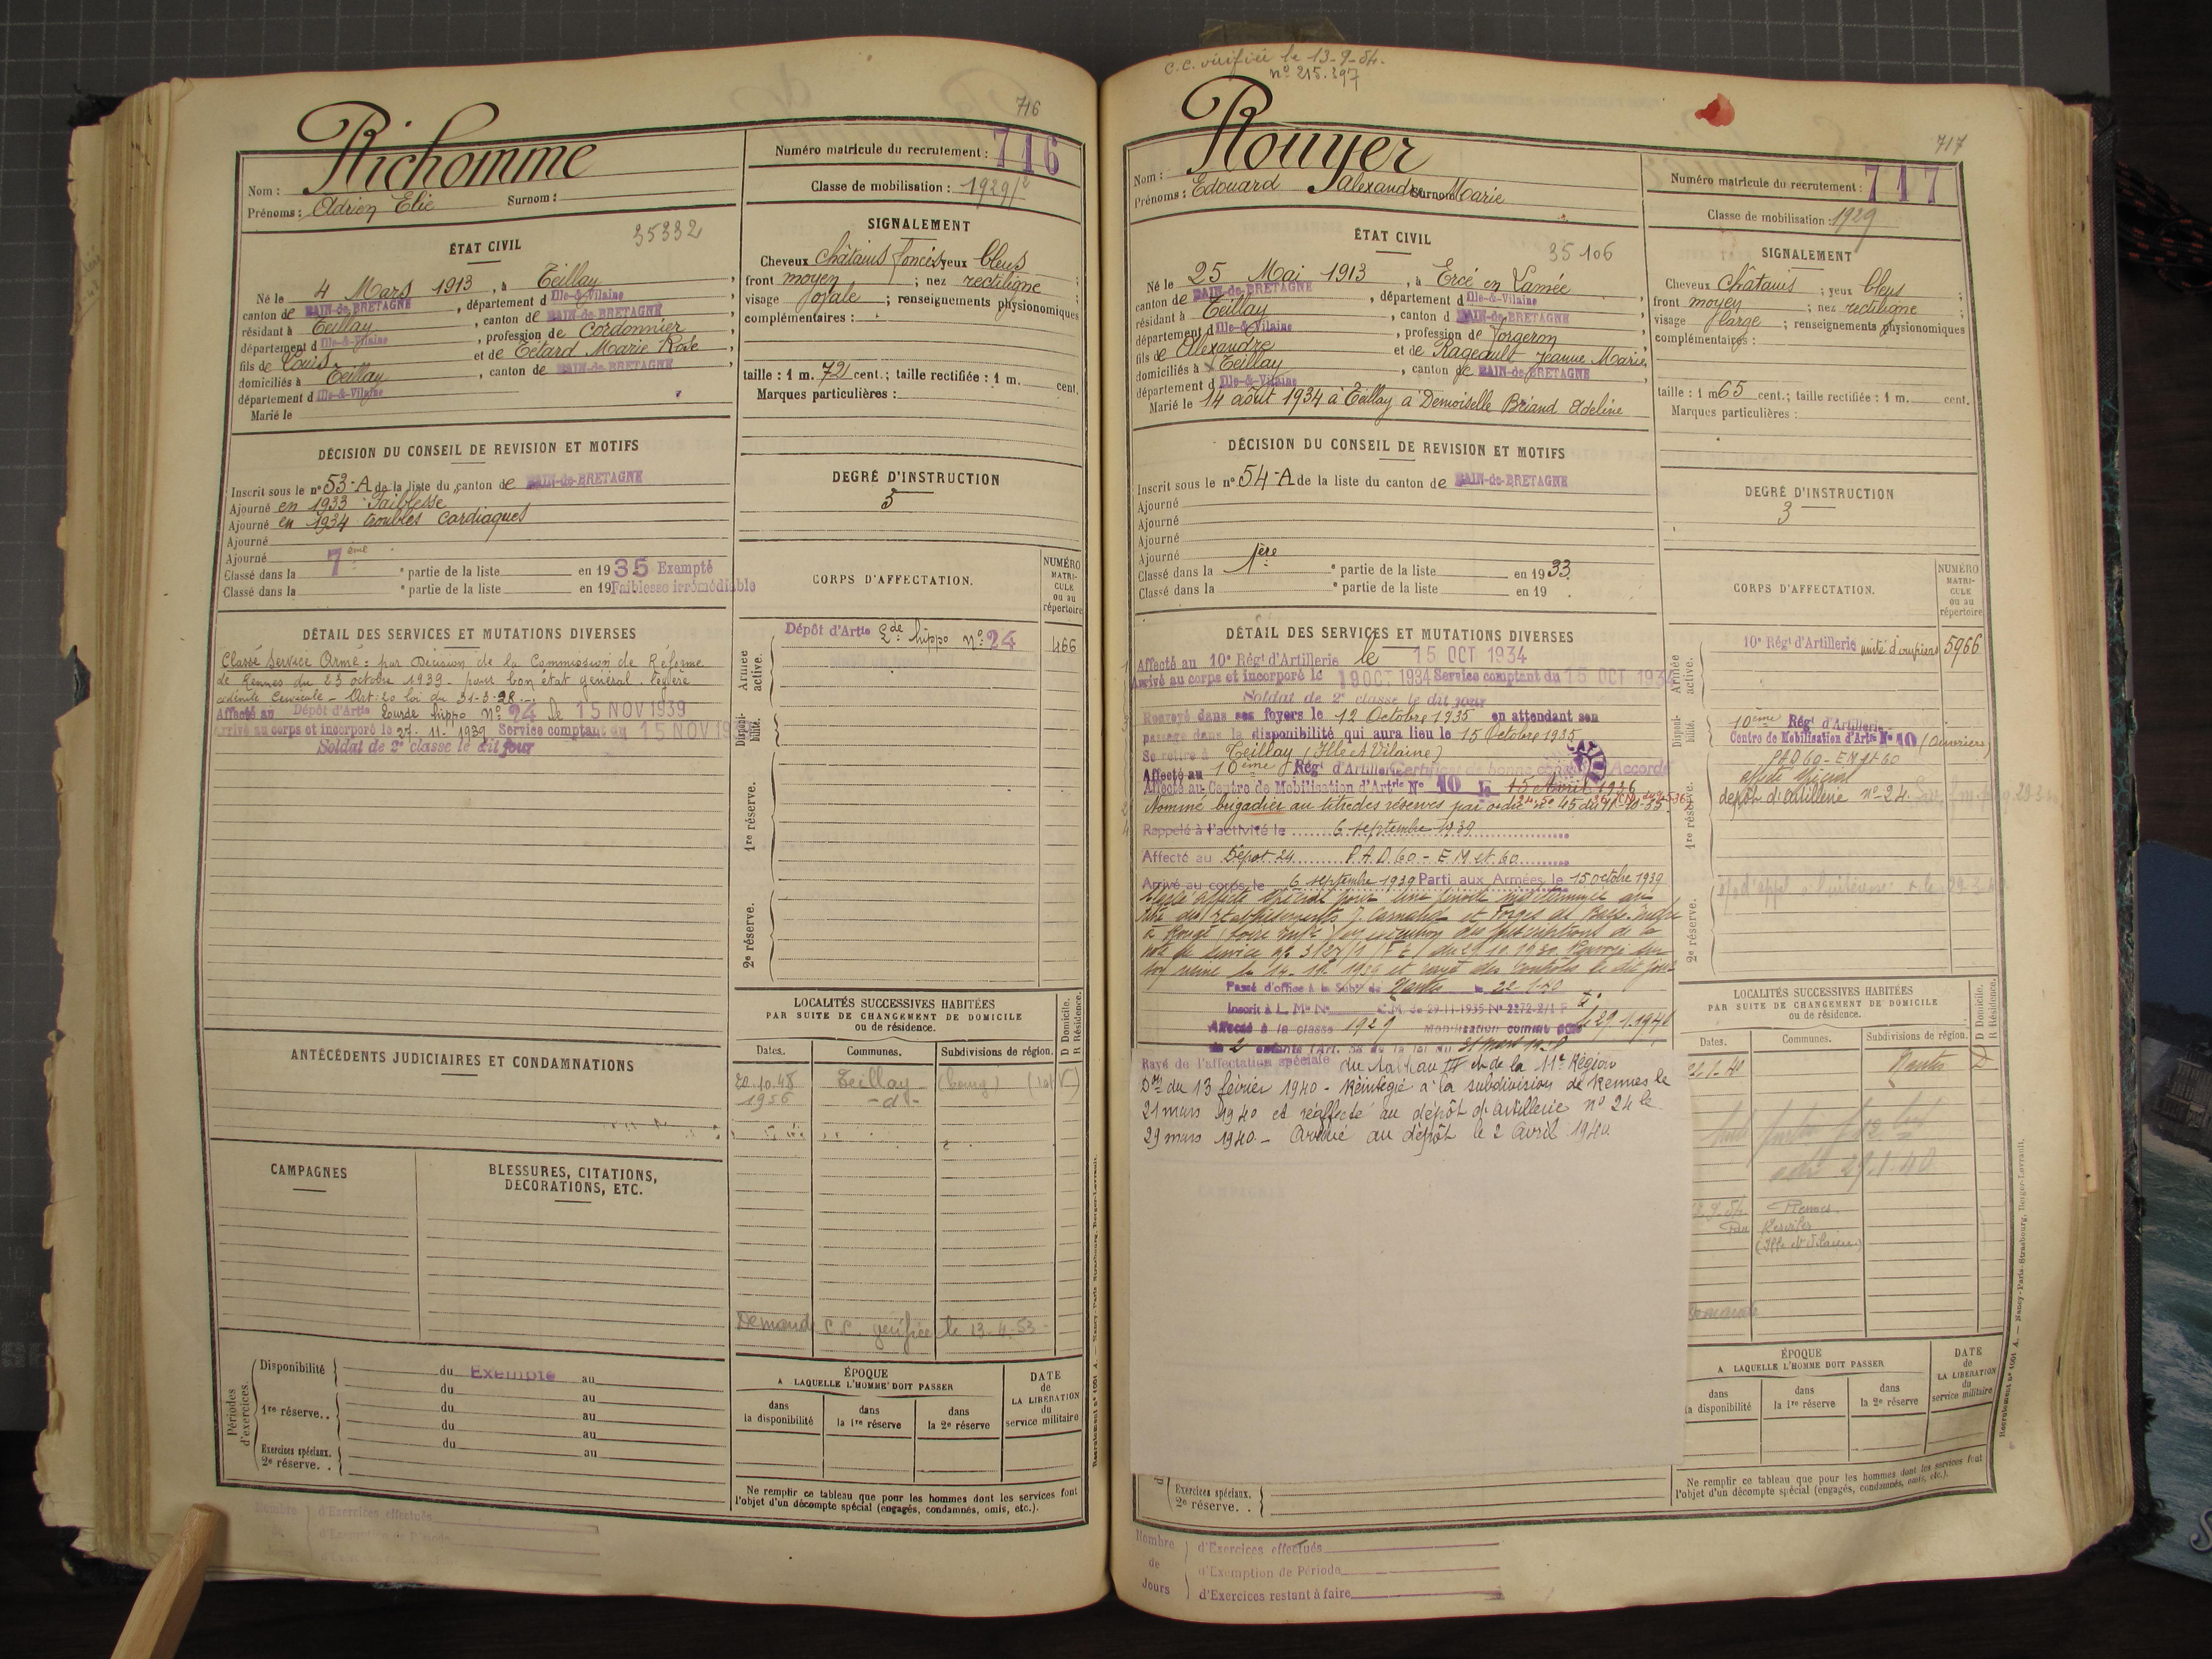 716
Richomme
Nom :
Prénoms : Adrien Elie Surnom :
Numéro matricule du recrutement : 716
Classe de mobilisation : 1929/2
ÉTAT CIVIL
35332
Né le 4 Mars 1913, à Teillay,
canton de BAIN-de-BRETAGNE, département d Ille-&-Vilaine
résidant à Teillay, canton de BAIN-de-BRETAGNE
département d Ille-&-Vilaine, profession de Cordonnier
fils de Louis et de Tetard Marie Rose,
domiciliés à Teillay, canton de BAIN-de-BRETAGNE,
département d Ille-&-Vilaine
Marié le
SIGNALEMENT
Cheveux châtains foncés yeux bleus ;
front moyen ; nez rectiligne
visage ; renseignements physionomiques
complémentaires :
taille : 1 m. 72 cent.; taille rectifiée : 1 m. cent.
Marques particulières :
DÉCISION DU CONSEIL DE REVISION ET MOTIFS
Inscrit sous le n° 53-A de la liste du canton de BAIN-de-BRETAGNE
Ajourné en 1933 Faiblesse
Ajourné en 1934 troubles Cardiaques
Ajourné
Ajourné
Classé dans la 7ème e partie de la liste en 1935 Exempté
Classé dans la e partie de la liste en 19 Faiblesse irrémédiable
DEGRÉ D'INSTRUCTION
3
CORPS D'AFFECTATION.
NUMÉRO MATRI-CULE ou au répertoire
DÉTAIL DES SERVICES ET MUTATIONS DIVERSES
Classé Service Armé : par Décision de la Commission de Réforme
de Rennes du 23 octobre 1939 - pour bon état général. légère
Cervicale - Art. 20 loi du 31-3-28
Affecté au Dépôt d'Artie Lourde hippo N° 24 le 15 NOV 1939
Arrivé au corps et incorporé le 27-11-1939 Service comptant du 15 NOV 19
Soldat de 2e classe le dit jour
Armée active.
Dépôt d'Artie Lde hippo N° 24 466
Disponibilité.
1re réserve.
2e réserve.
LOCALITÉS SUCCESSIVES HABITÉES
PAR SUITE DE CHANGEMENT DE DOMICILE
ou de résidence.
D Domicile.
R Résidence.
Dates. Communes. Subdivisions de région.
20.10.48 Teillay - (bourg)
1956 -d°-
Demande C.C. vérifiée le 13-4-53
ANTÉCÉDENTS JUDICIAIRES ET CONDAMNATIONS
CAMPAGNES
BLESSURES, CITATIONS,
DÉCORATIONS, ETC.
Périodes d'exercices.
Disponibilité du Exempté au
du au
1re réserve.. du au
du au
du au
Exercices spéciaux.
2e réserve. .
ÉPOQUE
A LAQUELLE L'HOMME DOIT PASSER
dans la disponibilité
dans la 1re réserve
dans la 2e réserve
DATE de LA LIBÉRATION du service militaire
Ne remplir ce tableau que pour les hommes dont les services font
l'objet d'un décompte spécial (engagés, condamnés, omis, etc.).
Nombre de Jours
d'Exercices effectués
d'Exemption de Période
C.C. vérifiée le 13-9-54.
n° 215.397
717
Rouyer
Nom :
Prénoms : Edouard Alexandre Surnom Marie
Numéro matricule du recrutement : 717
Classe de mobilisation : 1929
ÉTAT CIVIL
35106
Né le 25 Mai 1913, à Ercé en Lamée,
canton de BAIN-de-BRETAGNE, département d Ille-&-Vilaine
résidant à Teillay, canton d BAIN-de-BRETAGNE
département d Ille-&-Vilaine, profession de forgeron
fils de Alexandre et de Rageault Jeanne Marie,
domiciliés à Teillay, canton de BAIN-de-BRETAGNE
département d Ille-&-Vilaine
Marié le 14 août 1934 à Teillay à Demoiselle Briand Adeline
SIGNALEMENT
Cheveux châtains ; yeux bleus ;
front moyen ; nez rectiligne
visage large ; renseignements physionomiques
complémentaires :
taille : 1 m 65 cent.; taille rectifiée : 1 m. cent.
Marques particulières :
DÉCISION DU CONSEIL DE REVISION ET MOTIFS
Inscrit sous le n° 54-A de la liste du canton de BAIN-de-BRETAGNE
Ajourné
Ajourné
Ajourné
Ajourné
Classé dans la 1ère e partie de la liste en 1933
Classé dans la e partie de la liste en 19 .
DEGRÉ D'INSTRUCTION
3
CORPS D'AFFECTATION.
NUMÉRO MATRI-CULE ou au répertoire
DÉTAIL DES SERVICES ET MUTATIONS DIVERSES
Affecté au 10e Régt d'Artillerie le 15 OCT 1934
Arrivé au corps et incorporé le 19 OCT 1934 Service comptant du 15 OCT 1934
Soldat de 2e classe le dit jour
Renvoyé dans ses foyers le 12 Octobre 1935 en attendant son
passage dans la disponibilité qui aura lieu le 15 Octobre 1935
Se retire à Teillay (Ille et Vilaine)
Affecté au 10ème Régt d'Artillerie Certificat de bonne conduite Accordé
Affecté au Centre de Mobilisation d'Artie N° 10 le 15 Avril 1936
Nommé brigadier au titre des réserves par ordre n° 45 du
Rappelé à l'activité le 6 septembre 1939
Affecté au Dépôt 24 P.A.D. 60 - E M et 60
Arrivé au corps le 6 septembre 1939 Parti aux Armées le 15 octobre 1939
Affecté spécial pour une période indéterminée au
titre des Etablissements J. Carnaud et Forges de Basse-Indre
à Rougé (Loire Infre) en exécution des prescriptions de la
Passé d'office à la Subdon de Nantes le 22-1-40
Inscrit à L. Mle N° C.M. de 29-11-1935 N° 2272-2/1 P
Affecté à la classe 1929 Mobilisation comme père le 29.1.1940
de 2 enfants (Art. 58 de la loi du 31 mars 1928)
Rayé de l'affectation spéciale du Tableau III de la 11e Région
Don du 13 février 1940 - Réintégré à la subdivision de Rennes le
21 mars 1940 et réaffecté au dépôt d'artillerie n° 24 le
29 mars 1940 - Arrivé au dépôt le 2 Avril 1940
Armée active.
10e Régt d'Artillerie unité d'ouvriers 5966
Disponibilité.
10ème Régt d'Artillerie
Centre de Mobilisation d'Artie N° 10 (Ouvriers)
PAD 60 - EM et 60
1re réserve.
affecté spécial
dépôt d'artillerie n° 24
2e réserve.
LOCALITÉS SUCCESSIVES HABITÉES
PAR SUITE DE CHANGEMENT DE DOMICILE
ou de résidence.
D Domicile.
R Résidence.
Dates. Communes. Subdivisions de région.
22.1.40 Nantes D
29.1.40
Rennes
(Ille et Vilaine)
Demande
ÉPOQUE
A LAQUELLE L'HOMME DOIT PASSER
dans la disponibilité
dans la 1re réserve
dans la 2e réserve
DATE de LA LIBÉRATION du service militaire
Exercices spéciaux.
2e réserve. .
Ne remplir ce tableau que pour les hommes dont les services font
l'objet d'un décompte spécial (engagés, condamnés, omis, etc.).
Nombre de Jours
d'Exercices effectués
d'Exemption de Période
d'Exercices restant à faire